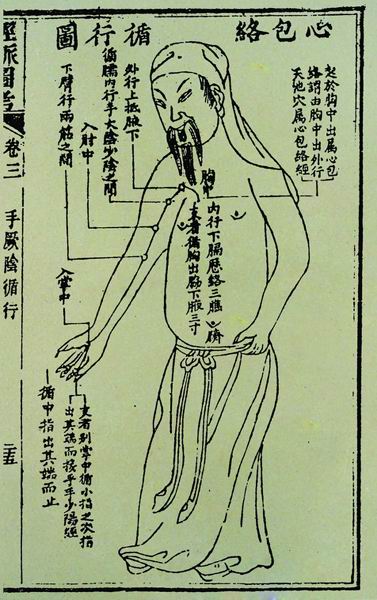 心包絡循行圖
起於胸中出属心包
絡謂由胸中出外行
天池穴属心包絡經
外行上抵腋下
循臑内行手太陰少陰之間
入肘中
下臂行兩筋之間
胸中
内行下膈歷絡三膲
支者循胸出脇下腋三寸
臍
入掌中
支者別掌中循小指之次指
出其端而接乎手少陽經
循中指出其端而止
經脉圖考
卷三
手厥陰循行
二五